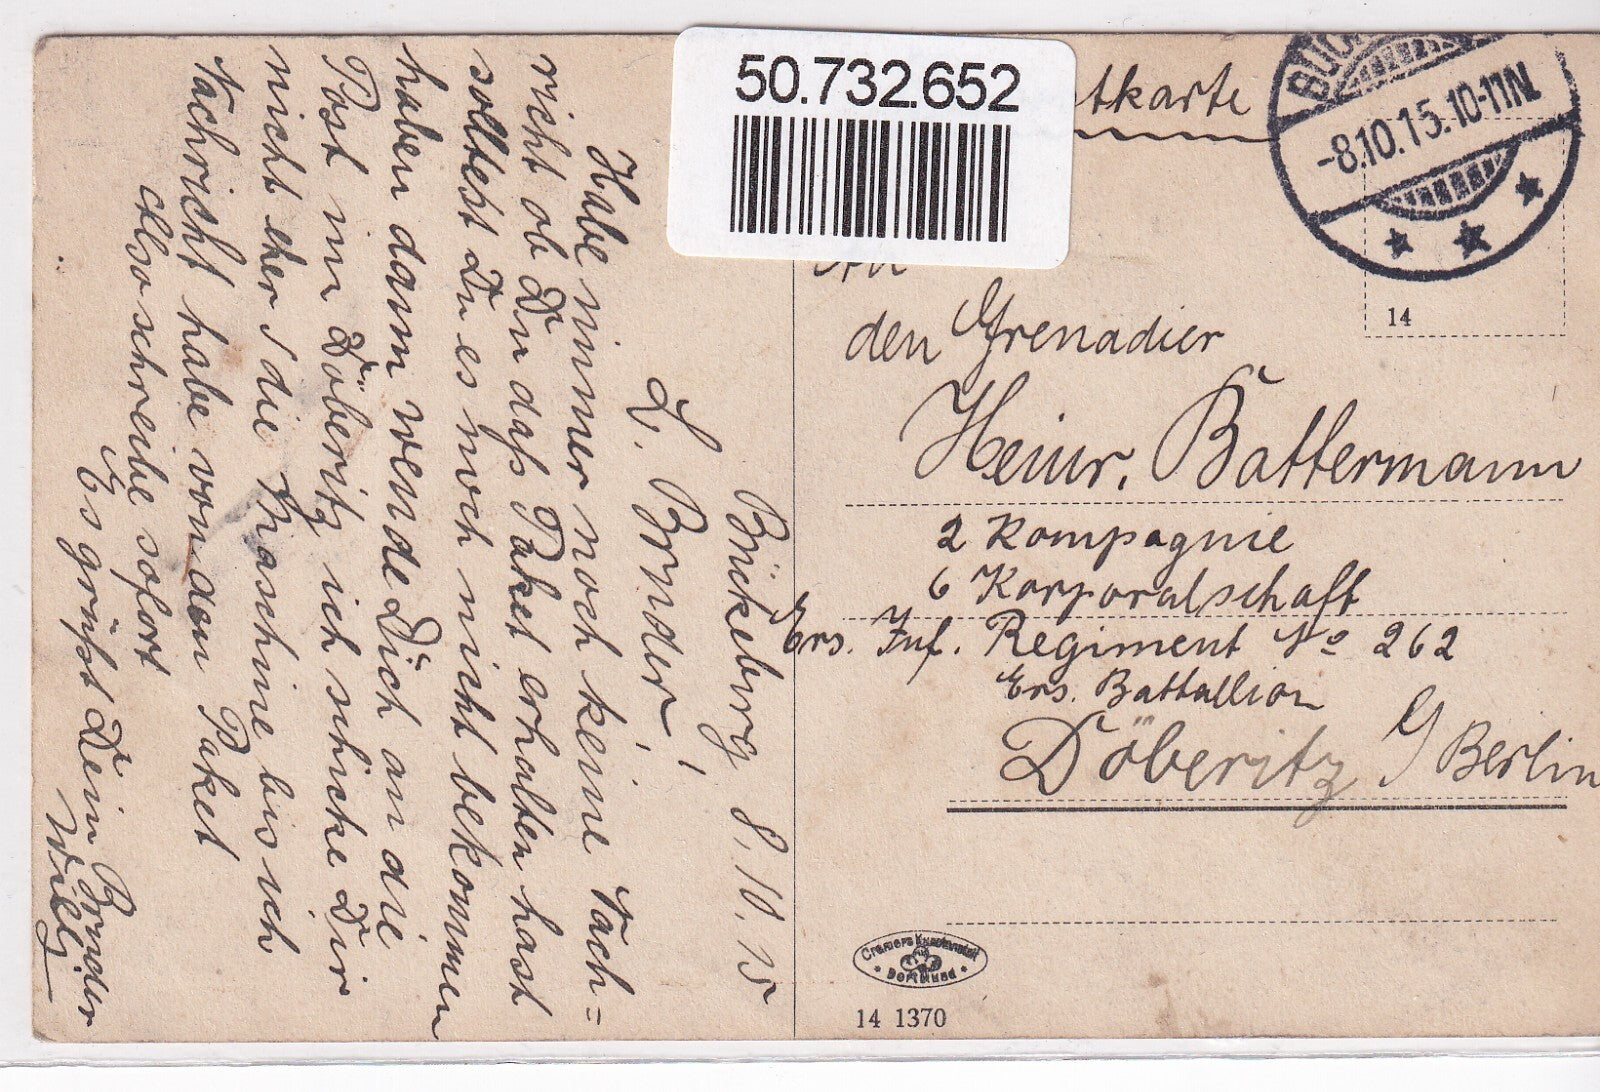 50.732.652
Bückeburg, 8.10.15
L. Bruder!
Habe immer noch keine Nach=
richt ob Du daß Paket erhalten hast
solltest Du es noch nicht bekommen
haben dann wende Dich an die
Post in Döberitz ich schicke Dir
nicht eher die Maschine bis ich
Nachricht habe von dem Paket
also schreibe sofort
Es grüßt Dein Bruder
Willy
tkarte
-8.10.15.10-11N.
14
An
den Grenadier
Heinr. Battermann
2 Kompagnie
6 Korporalschaft
Ers. Inf. Regiment No 262
Ers. Battallion
Döberitz b/Berlin
Cramers Kunstanstalt
Dortmund
14 1370